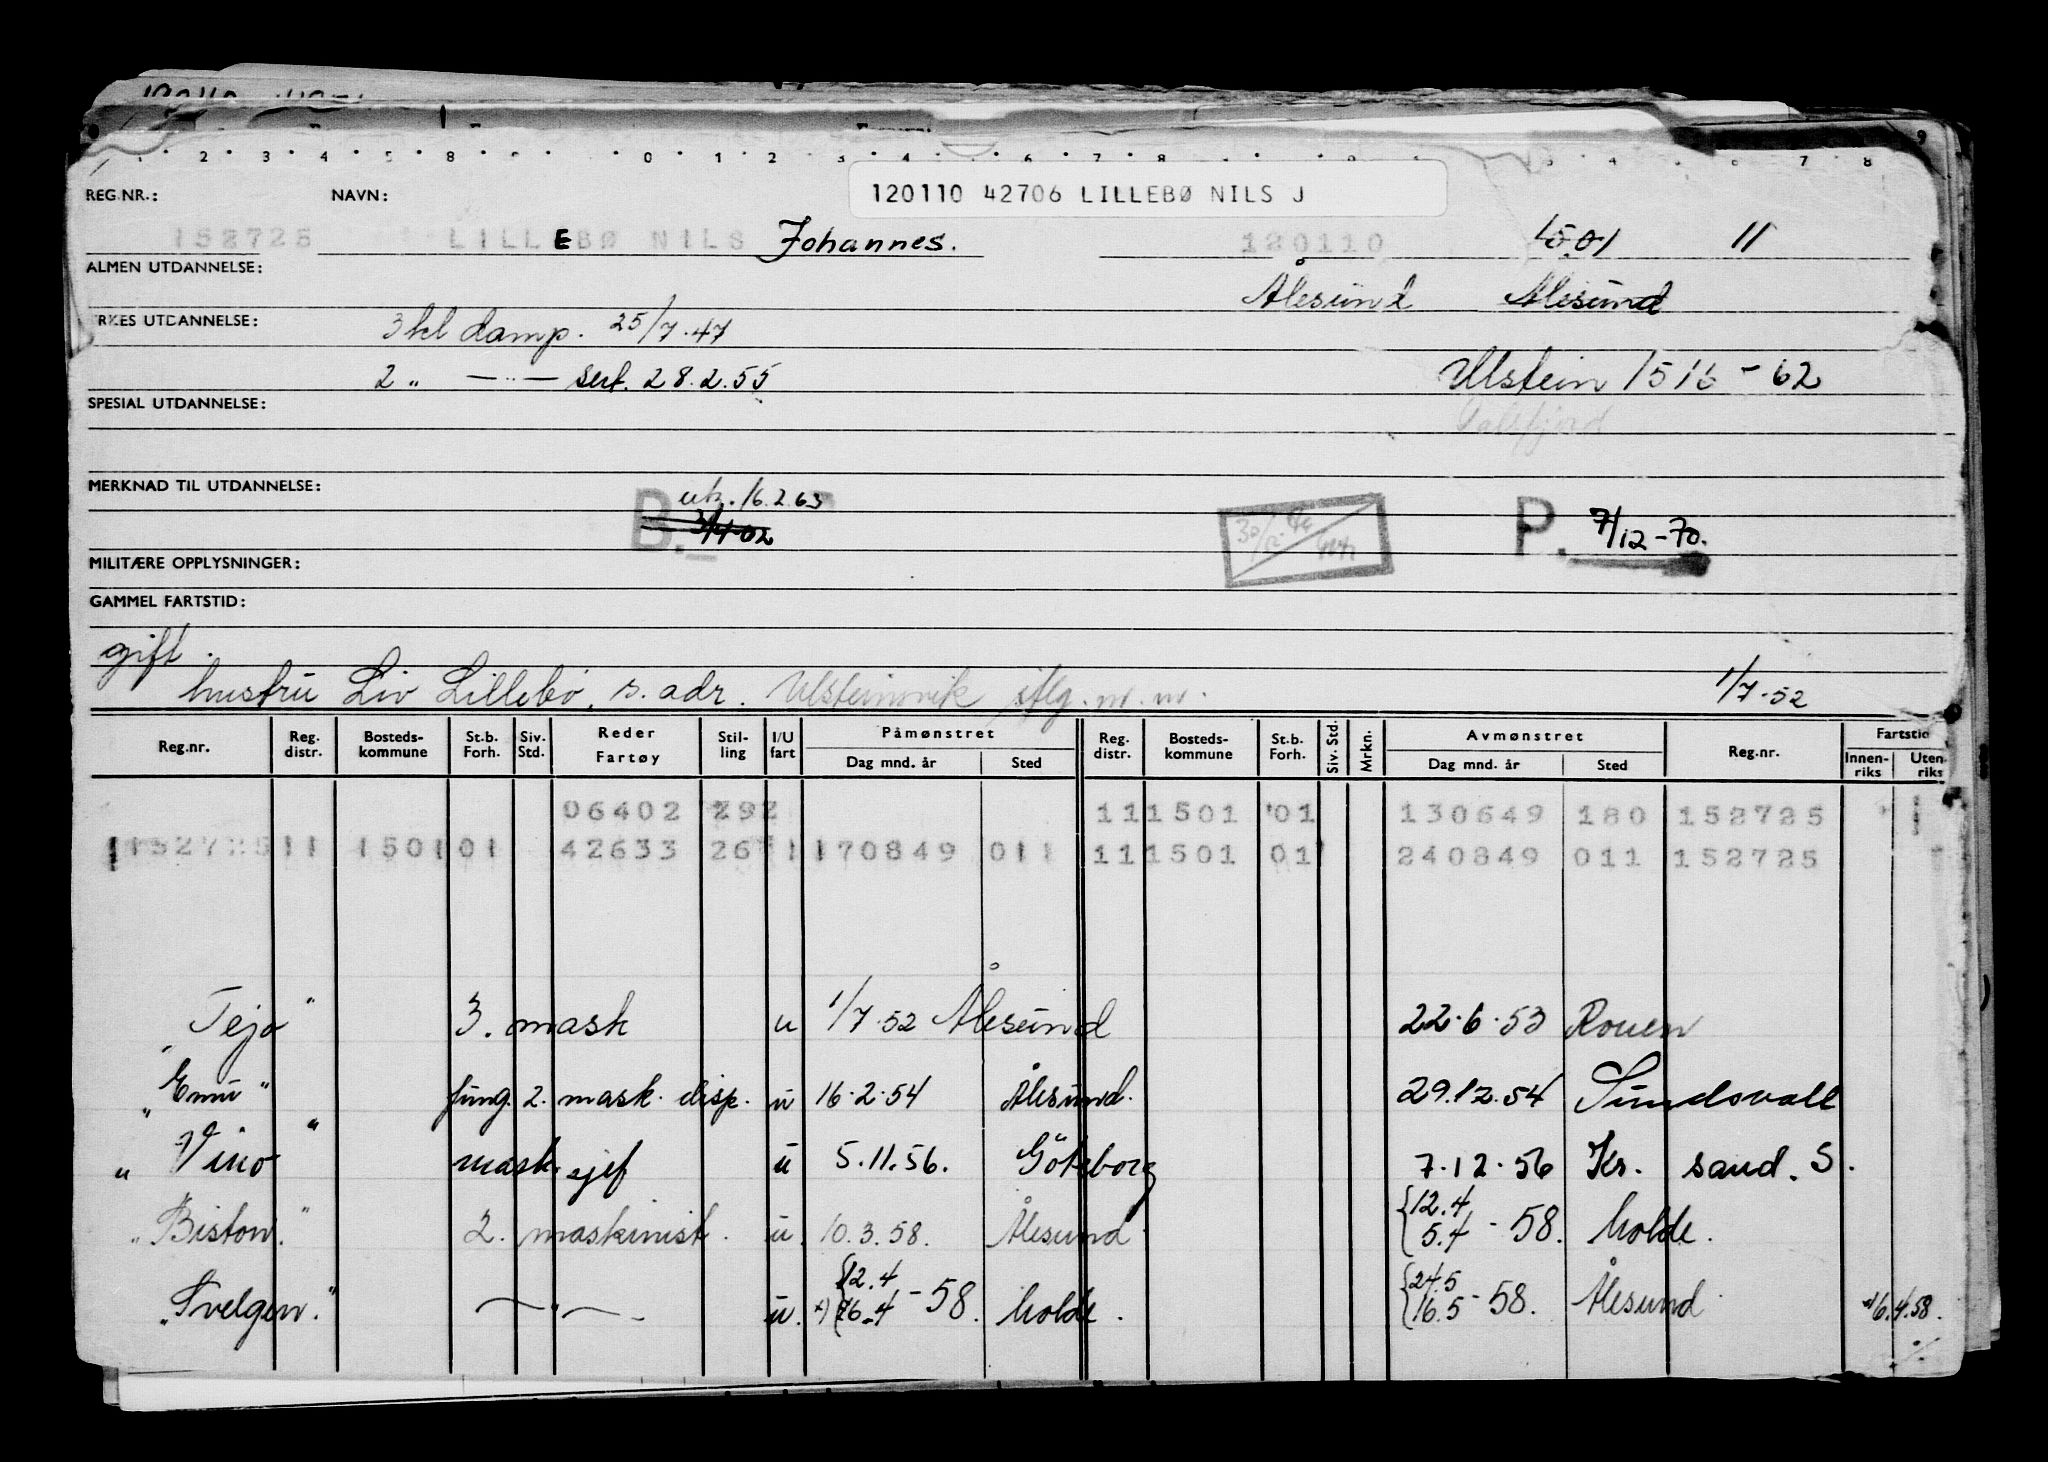 120110 42706 LILLEBØ NILS J
REG.NR.: NAVN:
152725 LILLEBØ NILS Johannes. 120110 1501 11
ALMEN UTDANNELSE: Ålesund Ålesund
YRKES UTDANNELSE: 3 kl damp. 25/7.47
2 " — " — sert. 28.2.55 Ulstein 1516-62
SPESIAL UTDANNELSE:
MERKNAD TIL UTDANNELSE: B. utg. 16.2.63
P. 7/12-70.
MILITÆRE OPPLYSNINGER:
GAMMEL FARTSTID:
gift.
hustru Liv Lillebø, s. adr. Ulsteinvik 1/7.52
Reg.nr. Reg. distr. Bosteds-kommune St.b. Forh. Siv. Std. Reder Fartøy Stil-ling I/U fart Påmønstret Dag mnd. år Sted Reg. distr. Bosteds-kommune St.b. Forh. Siv. Std. Mrkn. Avmønstret Dag mnd. år Sted Reg.nr. Fartstid Innen-riks Uten-riks
06402 292 11 1501 01 130649 180 152725
152725 11 1501 01 42633 26 1 170849 011 11 1501 01 240849 011 152725
"Tejo" 3. mask u 1/7.52 Ålesund 22.6.53 Rouen
"Emu" fung. 2. mask. disp. u 16.2.54 Ålesund. 29.12.54 Sundsvall
"Vino" mask. sjef u 5.11.56. Göteborg 7.12.56 Kr. sand. S.
"Biston." 2. maskinist. u. 10.3.58. Ålesund {12.4 5.4 - 58. Molde.
"Svelgen." — " — u. x) {12.4 16.4 - 58. Molde. {24.5 16.5 - 58. Ålesund x) 16.4.58.